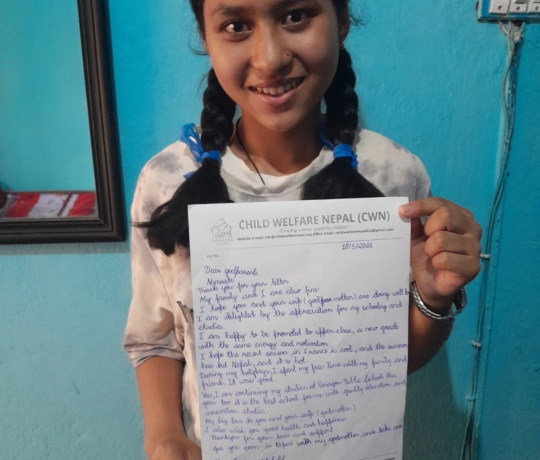 CHILD WELFARE NEPAL (CWN)
Creating a better world for children
Dear godparents
Namaste
Thank you for your letter
My family and I are also fine
I hope you and your wife (godmother) are doing well
I am delighted by the appreciation for my schooling and
studies.
I am happy to be promoted to upper class, a new grade
with the same energy and motivation.
I hope the recent season in France is cool, and the summer
has hit Nepal, and it is hot.
During my holidays, I spent my free time with my family and
friends. It was good.
Yes, I am continuing my studies at Paragon Public School this
year too. it is the best school for me with quality education and
innovative studies.
My big love to you and your wife (godmother)
I also wish you good health and happiness
Thankyou for your love and support
you soon in Nepal with my godmother, and take care